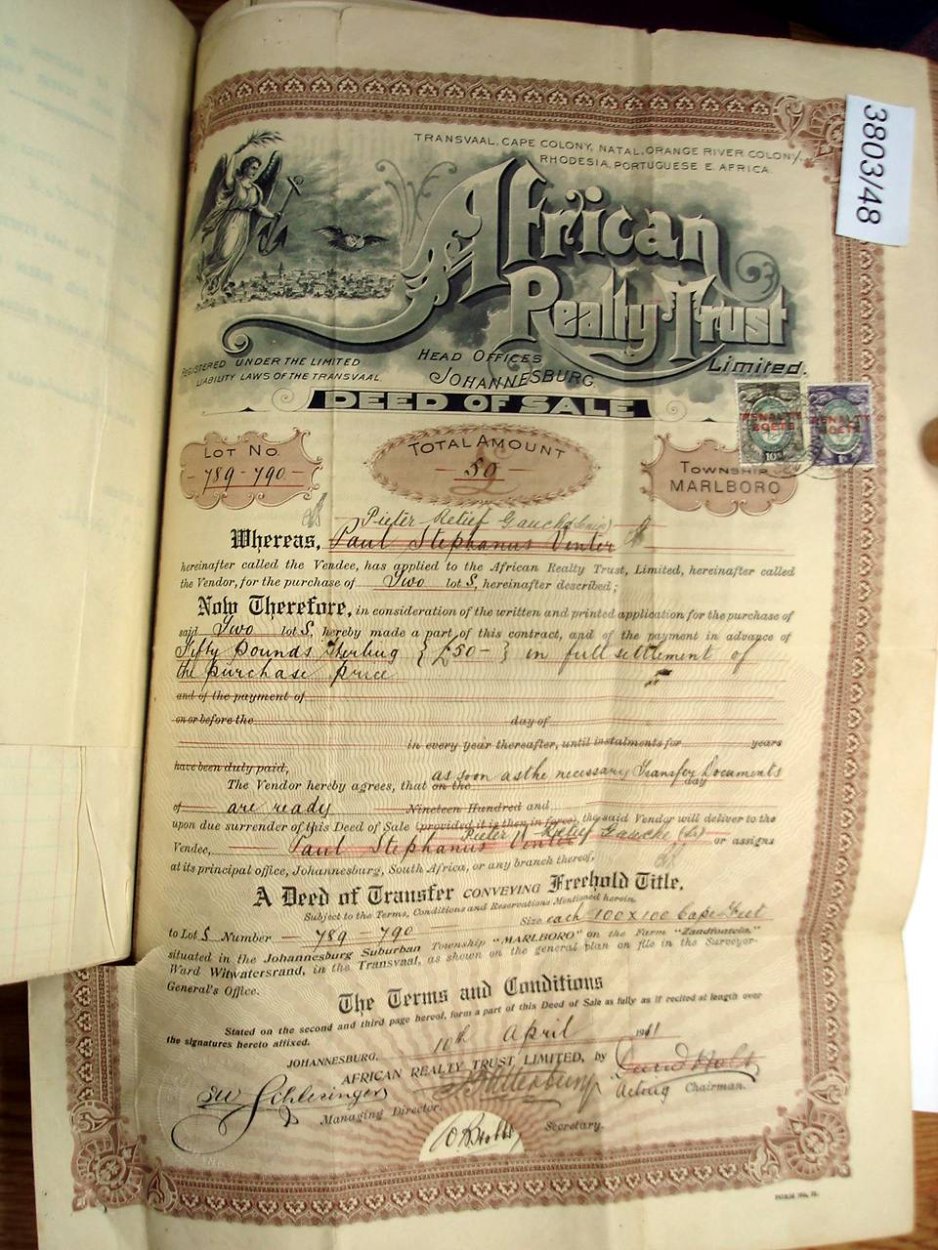 3803/48
TRANSVAAL, CAPE COLONY, NATAL, ORANGE RIVER COLONY,
RHODESIA, PORTUGUESE E. AFRICA.
African
Realty Trust
Limited.
REGISTERED UNDER THE LIMITED
LIABILITY LAWS OF THE TRANSVAAL
HEAD OFFICES
JOHANNESBURG
DEED OF SALE
PENALTY
BOETE
10s
PENALTY
BOETE
LOT No.
789 - 790
TOTAL AMOUNT
£
50
TOWNSHIP
MARLBORO
Pieter Retief Gauche (Senior)
Whereas, Paul Stephanus Venter
hereinafter called the Vendee, has applied to the African Realty Trust, Limited, hereinafter called
the Vendor, for the purchase of Two lot S, hereinafter described;
Now Therefore, in consideration of the written and printed application for the purchase of
said Two lot S, hereby made a part of this contract, and of the payment in advance of
Fifty Pounds Sterling { £50 - } in full settlement of
the purchase price
and of the payment of
on or before the day of
in every year thereafter, until instalments for years
have been duly paid,
as soon as the necessary Transfer Documents
The Vendor hereby agrees, that on the day
of are ready Nineteen Hundred and
upon due surrender of this Deed of Sale (provided it is then in force) the said Vendor will deliver to the
Pieter Retief Gauche (Sr)
Vendee, Paul Stephanus Venter or assigns
at its principal office, Johannesburg, South Africa, or any branch thereof,
A Deed of Transfer CONVEYING Freehold Title.
Subject to the Terms, Conditions and Reservations Mentioned herein.
Size each 100 x 100 Cape Feet
to Lot S Number 789 - 790
situated in the Johannesburg Suburban Township "MARLBORO" on the Farm "Zandfontein,"
Ward Witwatersrand, in the Transvaal, as shown on the general plan on file in the Surveyor-
General's Office.
The Terms and Conditions
Stated on the second and third page hereof, form a part of this Deed of Sale as fully as if recited at length over
the signatures hereto affixed.
JOHANNESBURG, 10th April 1911
AFRICAN REALTY TRUST LIMITED, by
Acting Chairman.
Schlesinger
Managing Director.
Secretary.